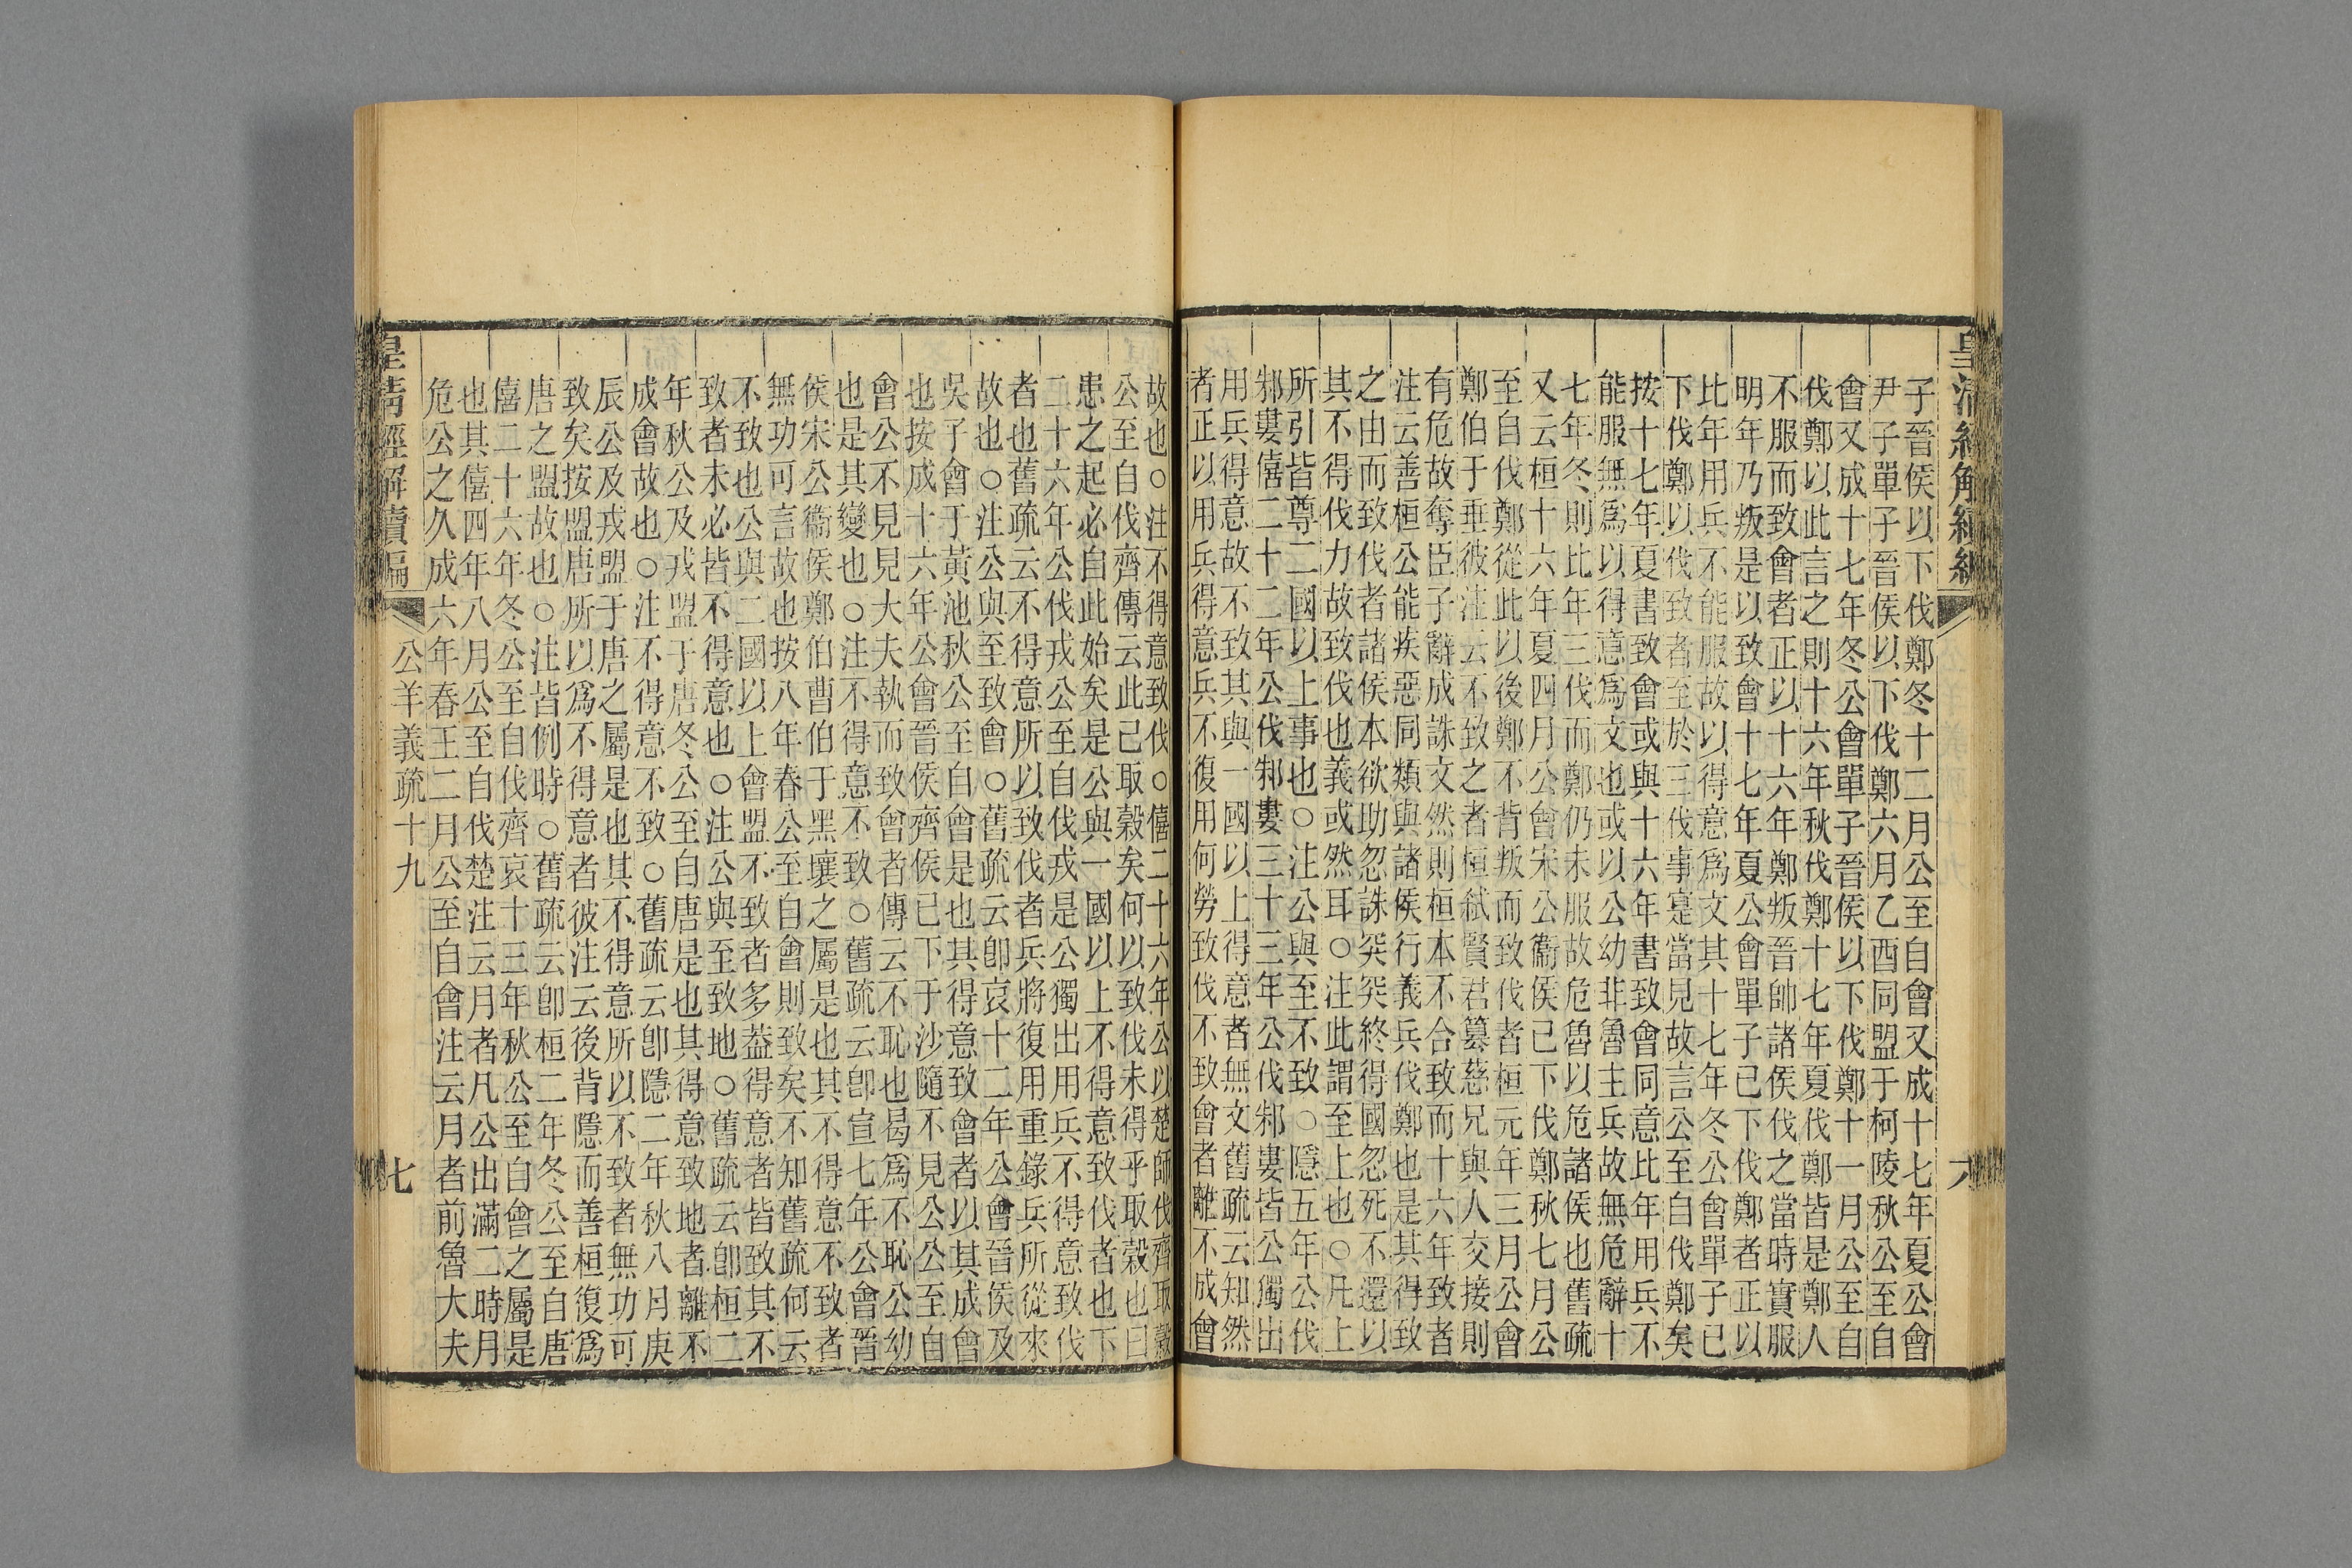 皇清經解續編
子晉侯以下伐鄭冬十二月公至自會又成十七年夏公會
尹子單子晉侯以下伐鄭六月乙酉同盟于柯陵秋公至自
會又成十七年冬公會單子晉侯以下伐鄭十一月公至自
伐鄭以此言之則十六年秋伐鄭十七年夏伐鄭皆是鄭人
不服而致會者正以十六年鄭叛晉帥諸侯伐之當時實服
明年乃叛是以致會十七年夏公會單子已下伐鄭者正以
比年用兵不能服故以得意爲文其十七年冬公會單子已
下伐鄭以伐致者至於三伐事寔當見故言公至自伐鄭矣
按十七年夏書致會或與十六年書致會同意比年用兵不
能服無爲以得意爲文也或以公幼非魯主兵故無危辭十
七年冬則比年三伐而鄭仍未服故危魯以危諸侯也舊疏
又云桓十六年夏四月公會宋公衞侯已下伐鄭秋七月公
至自伐鄭從此以後鄭不背叛而致伐者桓元年三月公會
鄭伯于垂彼注云不致之者桓弑賢君篡慈兄與人交接則
有危故奪臣子辭成誅文然則桓本不合致而十六年致者
注云善桓公能疾惡同類與諸侯行義兵伐鄭也是其得致
之由而致伐者諸侯本欲助忽誅突突終得國忽死不還以
其不得伐力故致伐也義或然耳○注此謂至上也○凡上
所引皆尊二國以上事也○注公與至不致○隱五年公伐
邾婁僖二十二年公伐邾婁三十三年公伐邾婁皆公獨出
用兵得意故不致其與一國以上得意者無文舊疏云知然
者正以用兵得意兵不復用何勞致伐不致會者離不成會
故也○注不得意致伐○僖二十六年公以楚師伐齊取穀
公至自伐齊傳云此已取穀矣何以致伐未得乎取穀也曰
患之起必自此始矣是公與一國以上不得意致伐者也下
二十六年公伐戎公至自伐戎是公獨出用兵不得意致伐
者也舊疏云不得意所以致伐者兵將復用重錄兵所從來
故也○注公與至致會○舊疏云卽哀十二年公會晉侯及
吳子會于黃池秋公至自會是也其得意致會者以其成會
也按成十六年公會晉侯齊侯已下于沙隨不見公公至自
會公不見見大夫執而致會者傳云不恥也曷爲不恥公幼
也是其變也○注不得意不致○舊疏云卽宣七年公會晉
侯宋公衞侯鄭伯曹伯于黑壤之屬是也其不得意不致者
無功可言故也按八年春公至自會則致矣不知舊疏何云
不致也公與二國以上會盟不致者多葢得意者皆致其不
致者未必皆不得意也○注公與至致地○舊疏云卽桓二
年秋公及戎盟于唐冬公至自唐是也其得意致地者離不
成會故也○注不得意不致○舊疏云卽隱二年秋八月庚
辰公及戎盟于唐之屬是也其不得意所以不致者無功可
致矣按盟唐所以爲不得意者彼注云後背隱而善桓復爲
唐之盟故也○注皆例時○舊疏云卽桓二年冬公至自唐
僖二十六年冬公至自伐齊哀十三年秋公至自會之屬是
也其僖四年八月公至自伐楚注云月者凡公出滿二時月
危公之久成六年春王二月公至自會注云月者前魯大夫
皇淸經解續編
公羊義疏十九
七